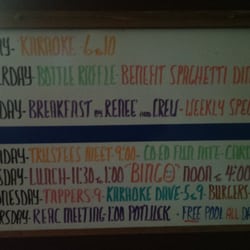 AY- KARAOKE - 6 to 10
RDAY- BOTTLE RAFFLE- BENEFIT SPAGHETTI DIN
DAY- BREAKFAST BY RENEE AND CREW- WEEKLY SPEC
DAY- TRUSTEES MEET 9:00- CO-ED FUN NITE- CARI
SDAY- LUNCH-11:30 to 1:00 BINGO NOON to 4:00
NESDAY- TAPPERS-9- KARAOKE DAVE-5 to 9- BURGERS
RSDAY- REAC MEETING 1:00 POTLUCK - FREE POOL ALL DA